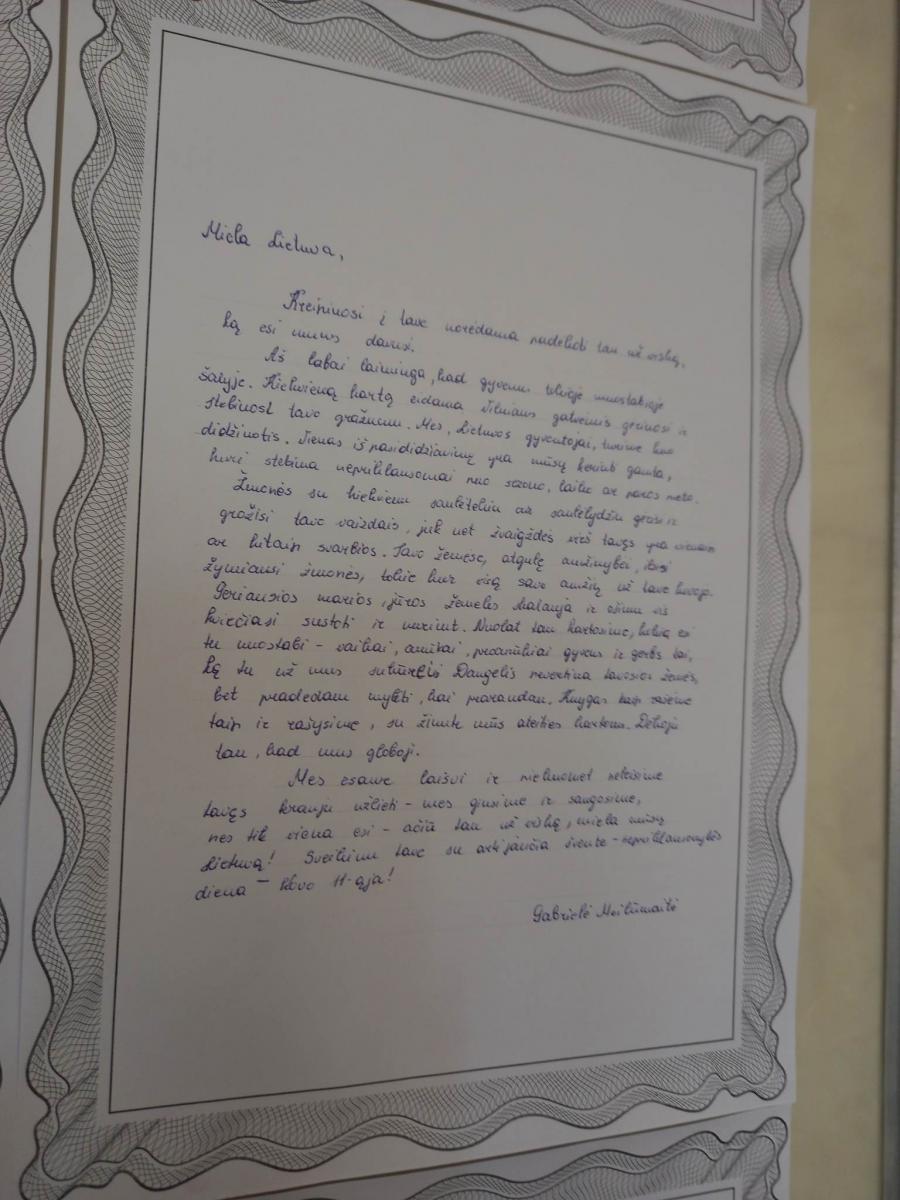 Miela Lietuva,
Kreipiuosi į tave norėdama padėkoti tau už viską,
ką esi mums davusi.
Aš labai laiminga, kad gyvenu tokioje nuostabioje
šalyje. Kiekvieną kartą eidama Vilniaus gatvėmis grožiuosi ir
stebiuosi tavo gražumu. Mes, Lietuvos gyventojai, turime kuo
didžiuotis. Vienas iš pasididžiavimų yra mūsų kerinti gamta,
kuri stebina nepriklausomai nuo sezono, laiko ar paros meto.
Žmonės su kiekvienu saulėtekiu ar saulėlydžiu grožisi
grožisi tavo vaizdais, juk net žvaigždės virš tavęs yra vienaip
ar kitaip svarbios. Tavo žemėse, atgulę amžinybei, ilsisi
žymiausi žmonės, tokie kur visą savo amžių už tave kovojo.
Geriausios marios, jūros žemelės skalauja ir ošimu vis
kviečiasi sustoti ir nurimt. Nuolat tau kartosime, kokia esi
tu nuostabi - vaikai, anūkai, proanūkiai gyvens ir gerbs tai,
ką tu už mus sutūrėjs Daugelis nevertina tavosios žemės,
bet pradedam mylėti, kai prarandam. Knygas kaip rašėme
taip ir rašysime, su žinute mūs ateities kartoms. Dėkoju
tau, kad mus globoji.
Mes esame laisvi ir niekuomet neleisime
tavęs krauju užlieti - mes ginsime ir saugosime,
nes tik viena esi - ačiū tau už viską, miela mūsų
Lietuva! Sveikinu tave su artėjančia švente - nepriklausomybės
diena - Kovo 11-ąja!
Gabrielė Meilūnaitė